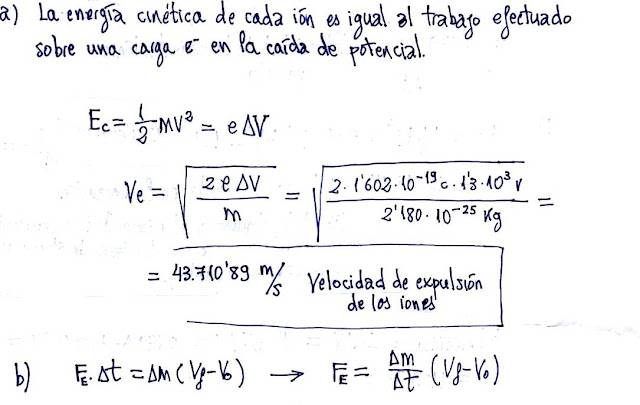 a) La energía cinética de cada ión es igual al trabajo efectuado
sobre una carga e⁻ en la caída de potencial.
Ec = 1/2 mv² = e ΔV
Ve = √(2 e ΔV / m) = √(2 · 1'602 · 10⁻¹⁹ c · 1'3 · 10³ v / 2'180 · 10⁻²⁵ Kg) =
= 43.710'89 m/s Velocidad de expulsión
de los iones
b) F_E · Δt = Δm (Vf - Vo) → F_E = Δm/Δt (Vf - Vo)